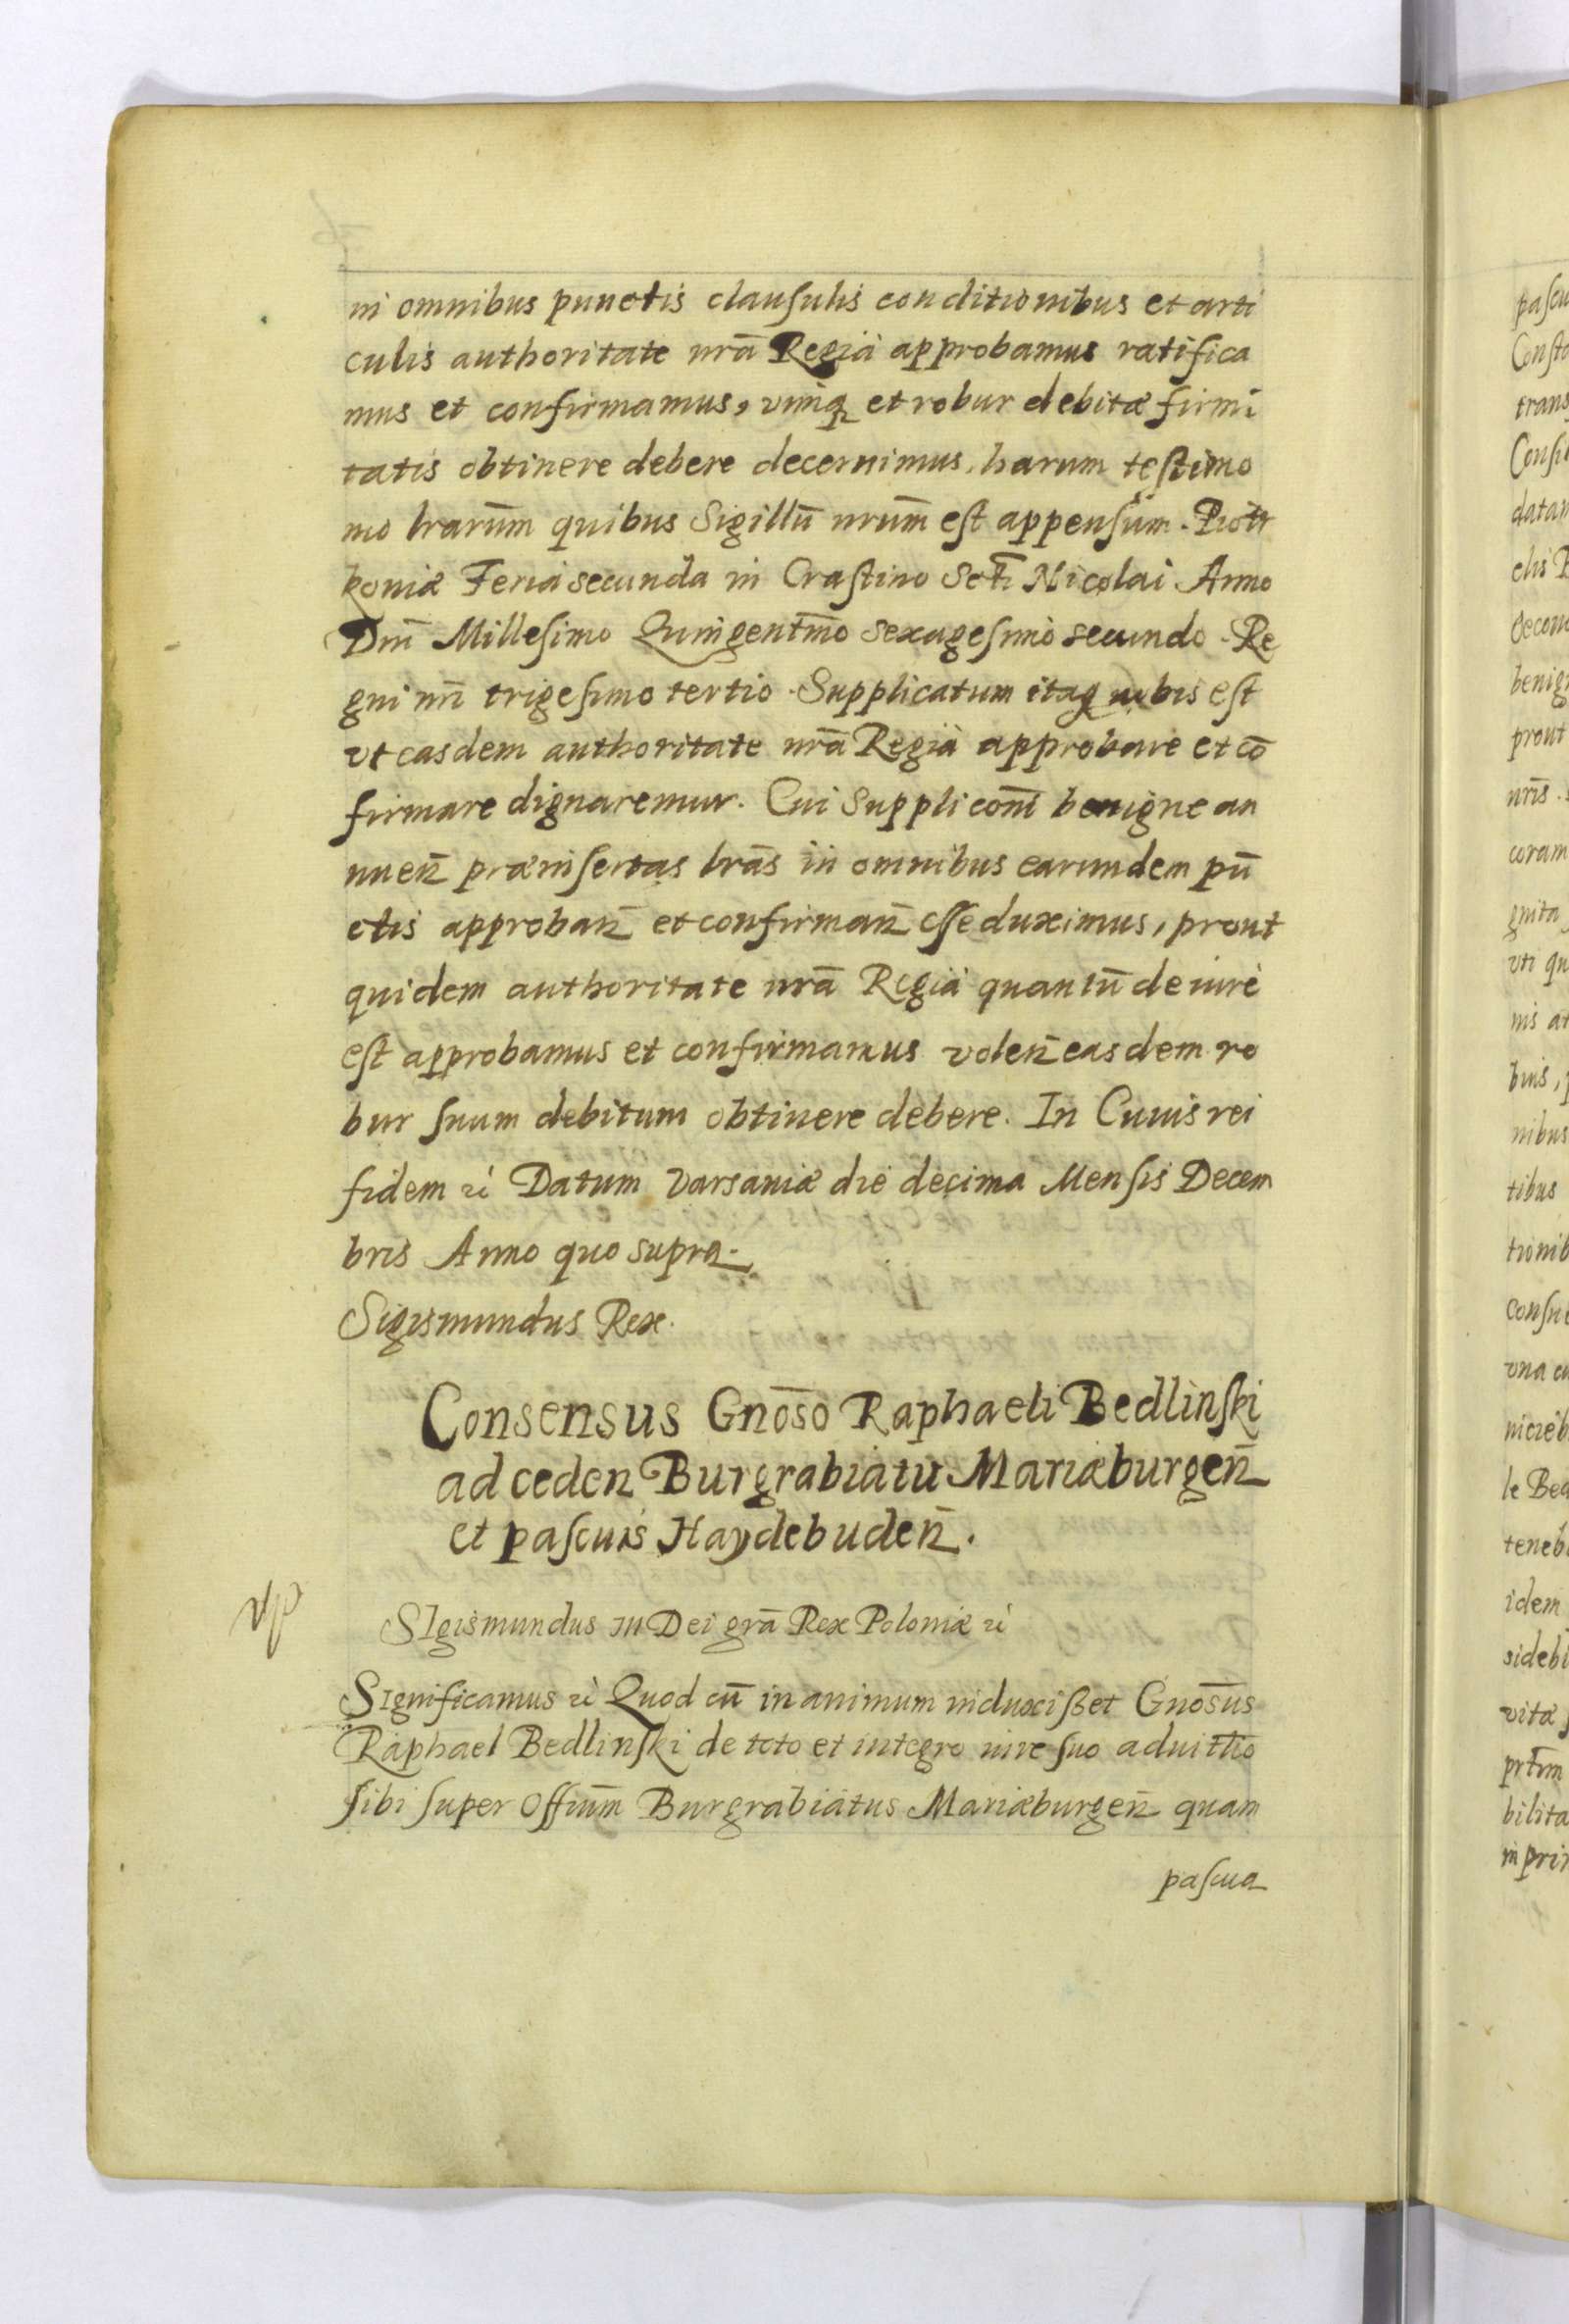 in omnibus punctis clausulis conditionibus et arti
culis authoritate nrã Regià approbamus ratifica
mus et confirmamus, vimq et robur debitæ firmi
tatis obtinere debere decernimus, harum testimo
nio lrarum̃ quibus Sigillũ nrum̃ est appensum. Piotr
koniæ Feria secunda in Crastino Scti Nicolai Anno
Dnĩ Millesimo Quingentm̃o sexagesimo secundo. Re
gni nrĩ trigesimo tertio. Supplicatum itaq nobis est
vt easdem authoritate nrã Regià approbare et cõ
firmare dignaremur. Cui Supplicoñi benigne an
nueñ præinsertas lrãs in omnibus earundem pũ
ctis approbañ et confirmañ esse duximus, prout
quidem authoritate nrã Regià quantũ de iure
est approbamus et confirmamus voleñ easdem ro
bur suum debitum obtinere debere. In Cuius rei
fidem ꝛc̀ Datum Varsauiæ die decima Mensis Decem
bris Anno quo supra.
Sigismundus Rex.
Consensus Gnõso Raphaeli Bedlinski
ad cedeñ Burgrabiatu Mariæburgeñ
et pascuis Haydebudeñ.
SIgismundus III Dei grã Rex Poloniæ ꝛc̀
SIgnificamus ꝛc̀ Quod cũ in animum induxisset Gnosũs
Raphael Bedlinski de toto et integro iure suo aduitlio
sibi super Offium̃ Burgrabiatus Mariæburgeñ quam
pascua